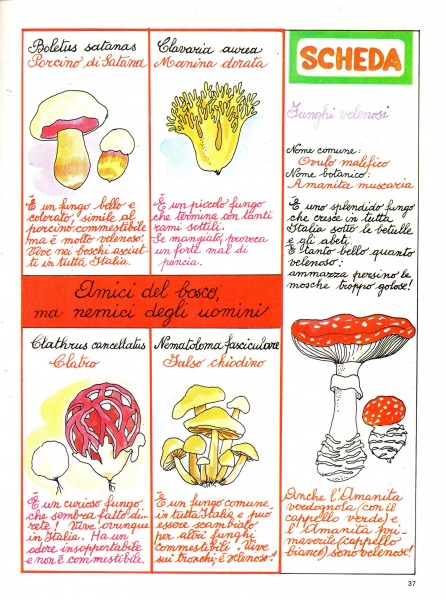 Boletus satanas
Porcino di Satana
È un fungo bello e
colorato, simile al
porcino commestibile
ma è molto velenoso.
Vive nei boschi asciut-
ti in tutta Italia.
Clavaria aurea
Manina dorata
È un piccolo fungo
che termina con tanti
rami sottili.
Se mangiato, provoca
un forte mal di
pancia.
Amici del bosco,
ma nemici degli uomini
Clathrus cancellatus
Clatro
È un curioso fungo
che sembra fatto di
rete! Vive ovunque
in Italia. Ha un
odore insopportabile
e non è commestibile.
Nematoloma fasciculare
Falso chiodino
È un fungo comune
in tutta Italia e può
essere scambiato
per altri funghi
commestibili. Vive
sui tronchi; è velenoso!
SCHEDA
Funghi velenosi
Nome comune:
Ovulo malefico
Nome botanico:
Amanita muscaria
È uno splendido fungo
che cresce in tutta
Italia sotto le betulle
e gli abeti.
È tanto bello quanto
velenoso:
ammazza persino le
mosche troppo golose!
Anche l'Amanita
verdognola (con il
cappello verde) e
l'Amanita pri-
maverile (cappello
bianco) sono velenose!
37